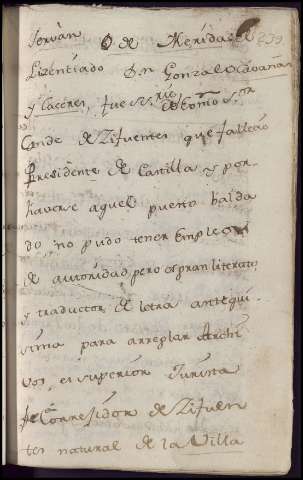 Jervàn O de Merida el 239
Lizenciado Dn Gonzalo
y Cazeres, fue Srio del Exmo Sor
Conde de Zifuentes que fallezio
Presidente de Castilla, y por
haverse aquel puerto balda
do, no pudo tener Empleo
de autoridad pero es gran literato
y traductor de letra antiqui-
sima para arreglar Archi
vos, es superior Jurista
fue Correjidor de Zifuen
tes natural de la Villa